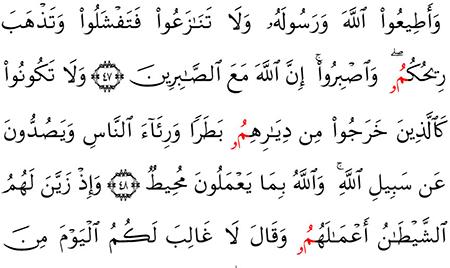 وَأَطِيعُواْ ٱللَّهَ وَرَسُولَهُۥ وَلَا تَنَٰزَعُواْ فَتَفْشَلُواْ وَتَذْهَبَ
رِيحُكُمُۥۖ وَٱصْبِرُوٓاْۚ إِنَّ ٱللَّهَ مَعَ ٱلصَّٰبِرِينَ ٤٧ وَلَا تَكُونُواْ
كَٱلَّذِينَ خَرَجُواْ مِن دِيَٰرِهِمُۥ بَطَرًا وَرِئَآءَ ٱلنَّاسِ وَيَصُدُّونَ
عَن سَبِيلِ ٱللَّهِۚ وَٱللَّهُ بِمَا يَعْمَلُونَ مُحِيطٌ ٤٨ وَإِذْ زَيَّنَ لَهُمُ
ٱلشَّيْطَٰنُ أَعْمَٰلَهُمُۥ وَقَالَ لَا غَالِبَ لَكُمُ ٱلْيَوْمَ مِنَ